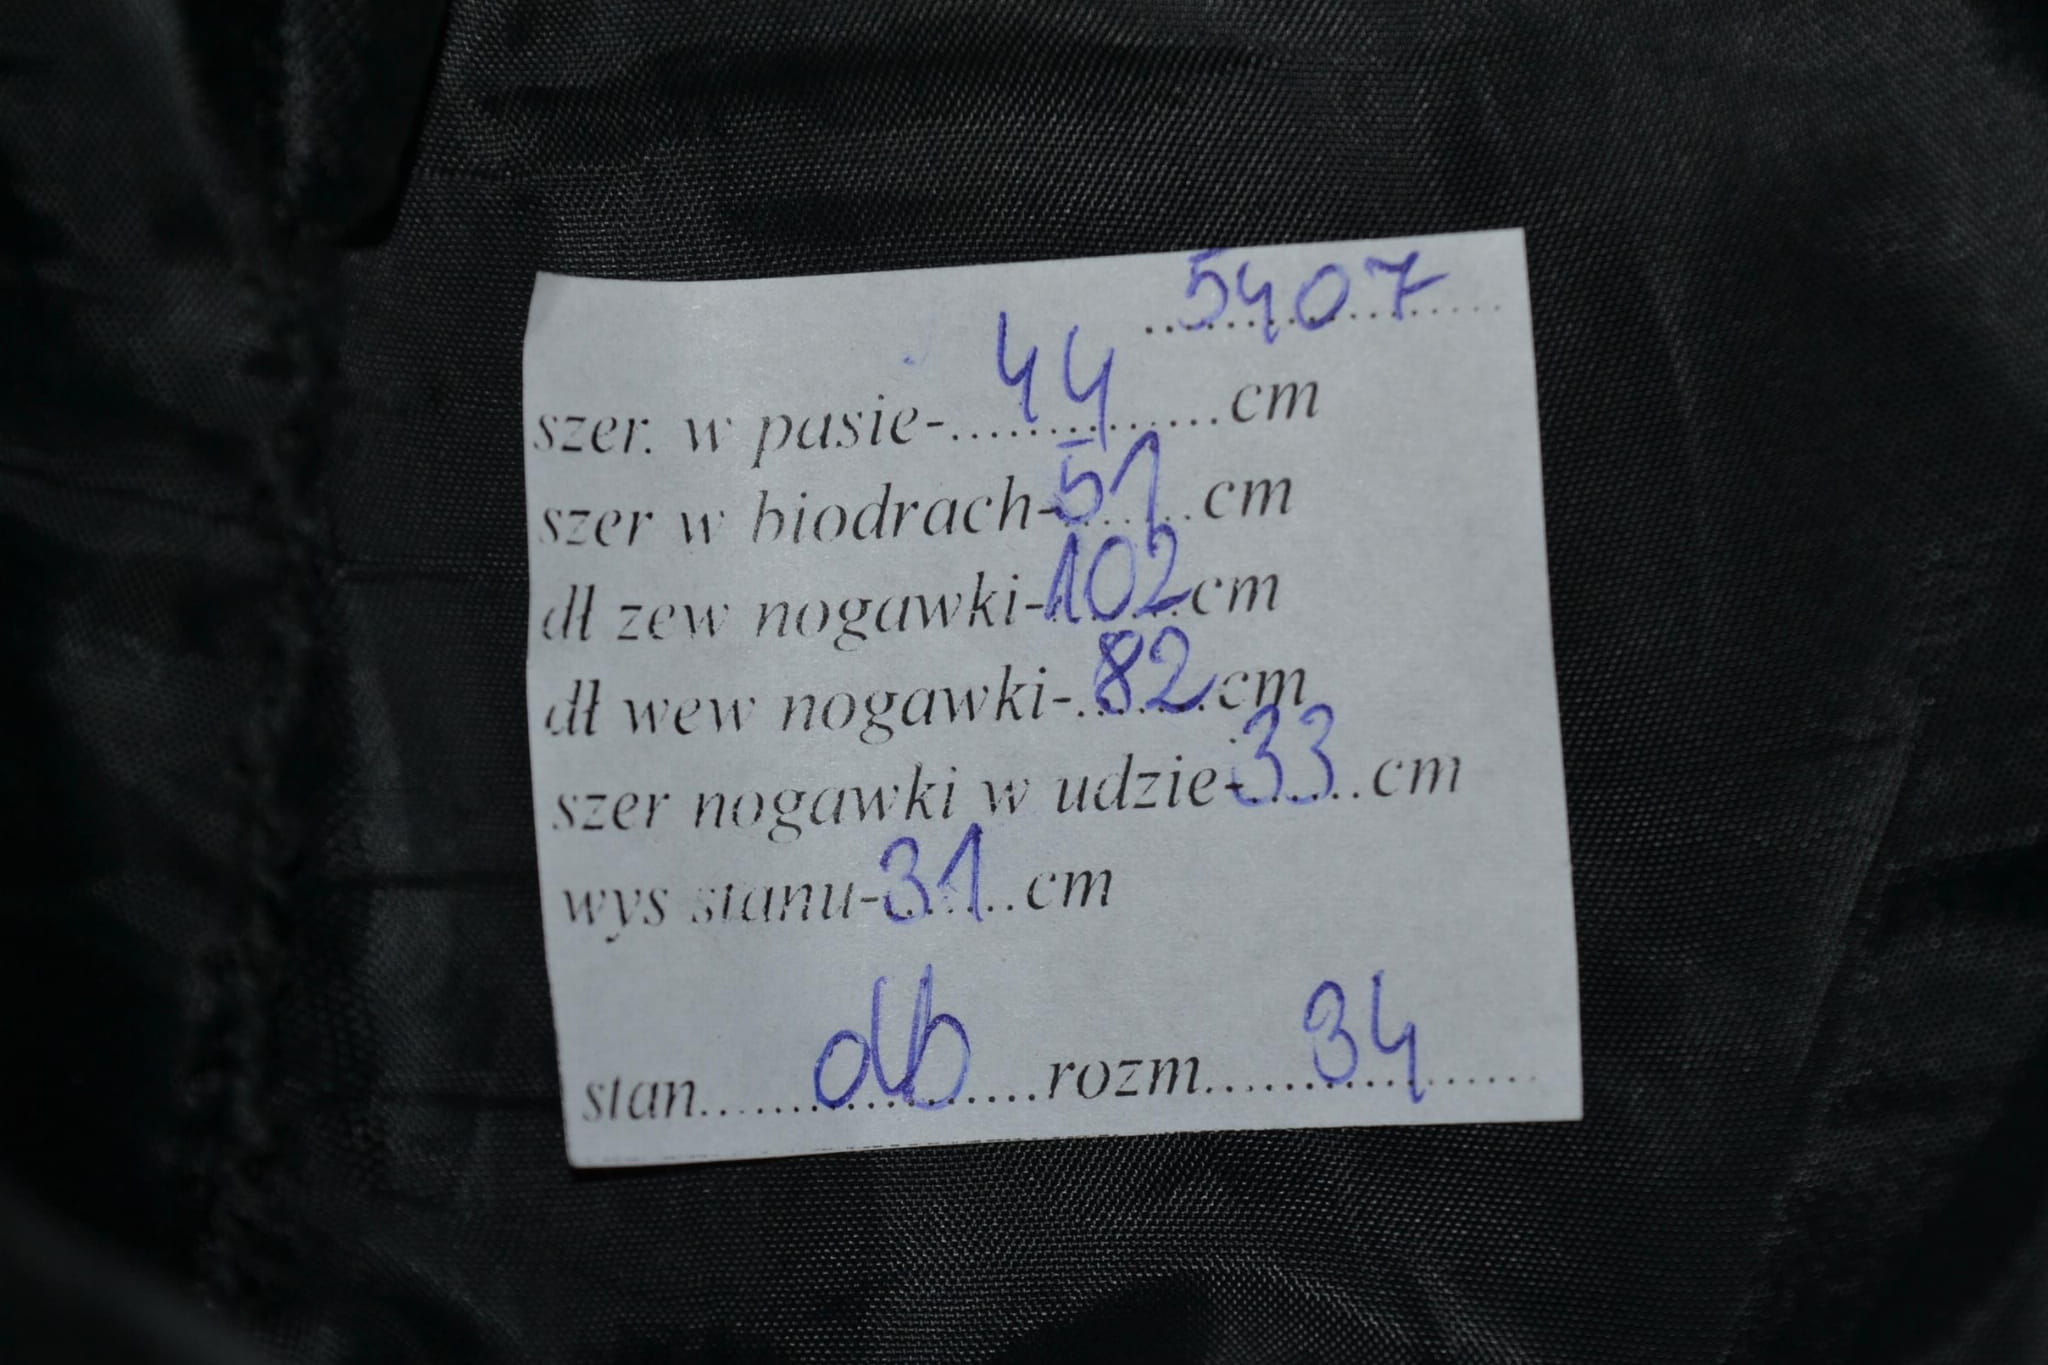 5407
szer. w pasie-44cm
szer w biodrach-51cm
dł zew nogawki-102cm
dł wew nogawki-82cm
szer nogawki w udzie-33cm
wys stanu-31cm
stan db rozm 34